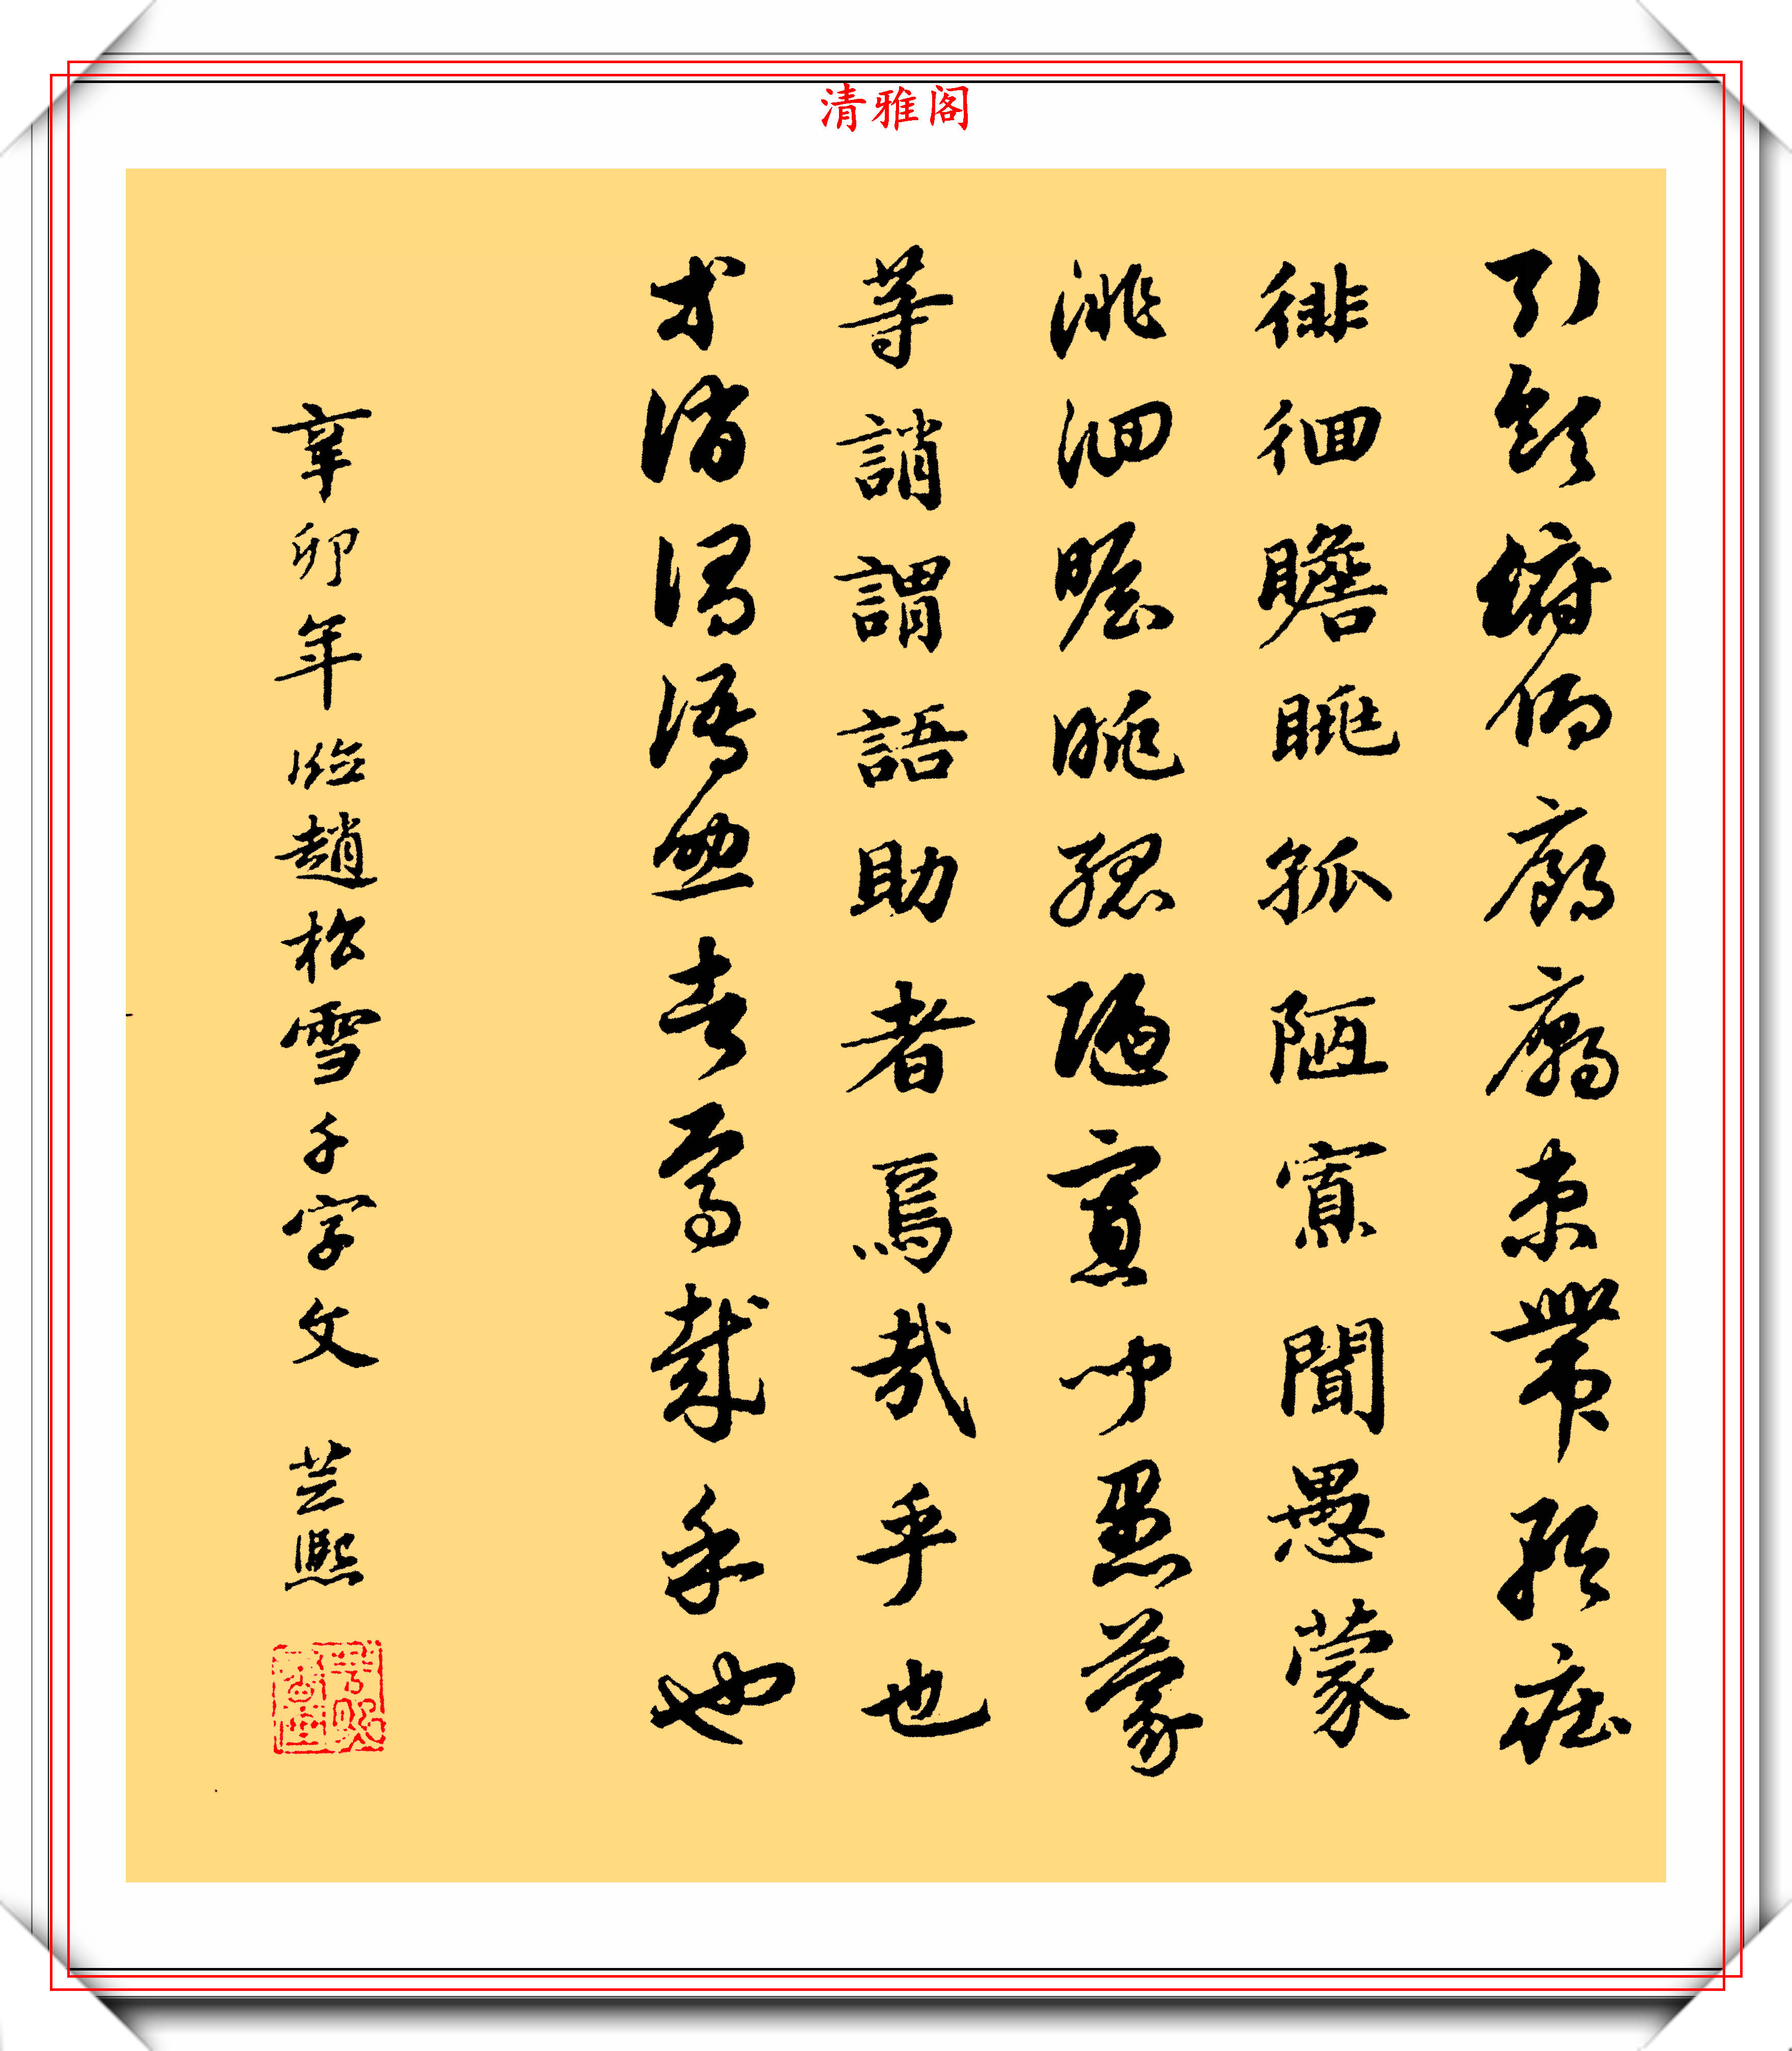 清雅阁
引領俯仰廊廟束帶矜庄
徘徊瞻眺孤陋寡聞愚蒙
徘徊瞻眺孤陋寡聞愚蒙
等誚謂語助者焉哉乎也
等誚謂語助者焉哉乎也
辛卯年臨趙松雪千字文 芸熙